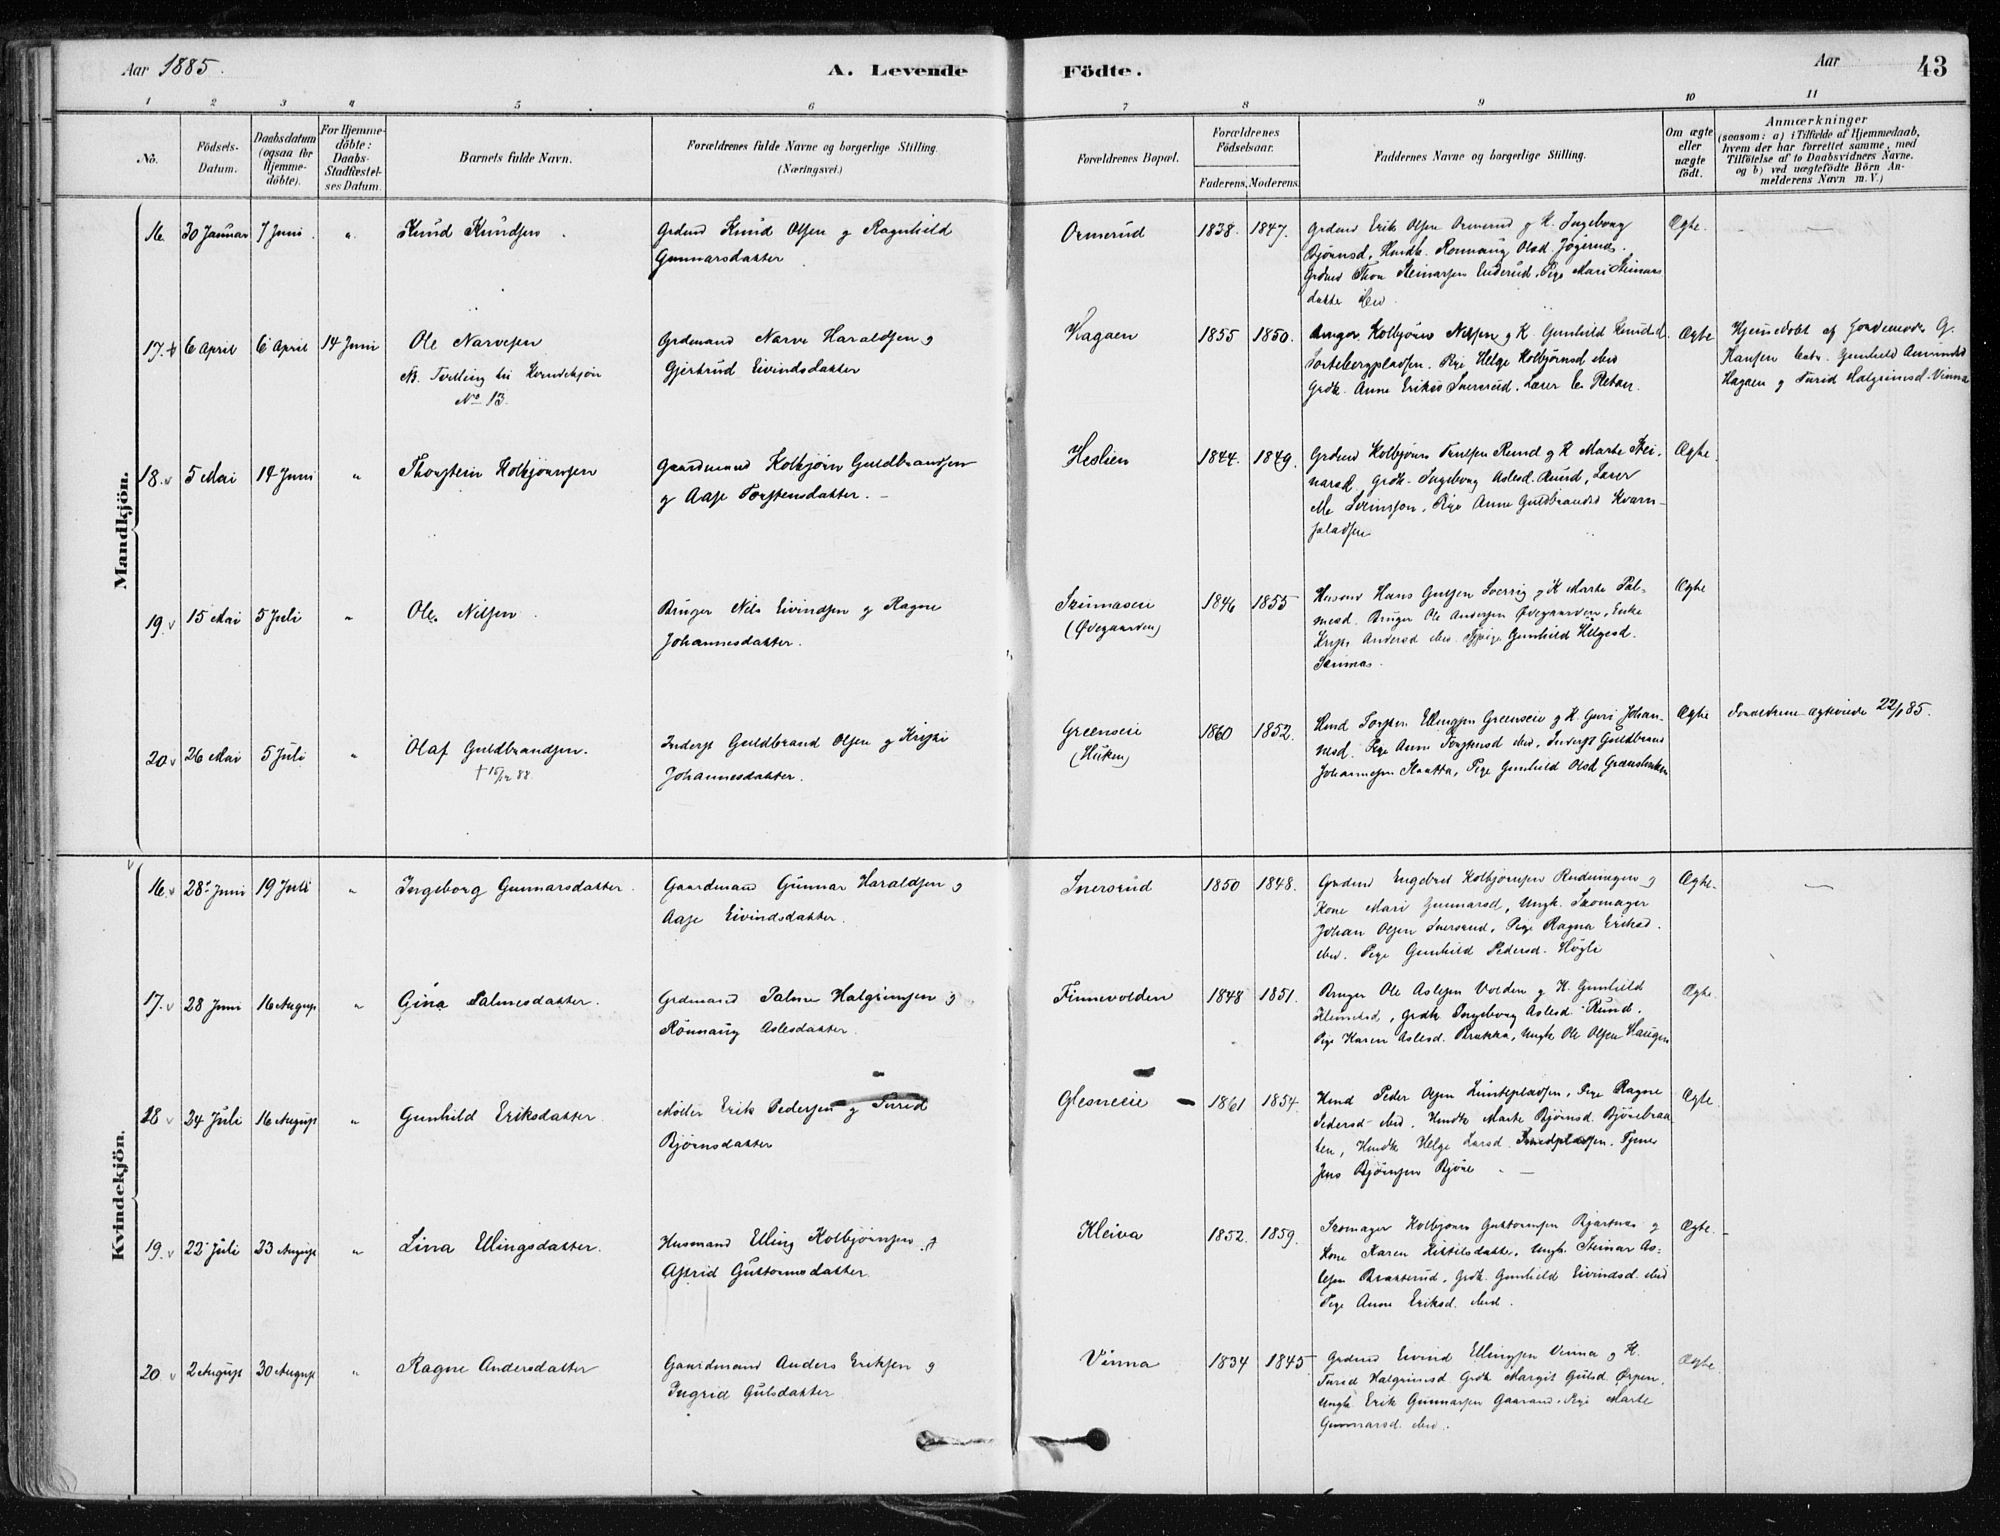 Aar 1885.
A. Levende Födte.
Aar
43
1 2 3 4 5 6 7 8 9 10 11
No.
Födsels-
Datum.
Daabsdatum
(ogsaa for
Hjemme-
döbte).
For Hjemme-
döbte:
Daabs-
Stadfæstel-
ses Datum.
Barnets fulde Navn.
Forældrenes fulde Navne og borgerlige Stilling.
(Næringsvei.)
Forældrenes Bopæl.
Forældrenes
Födselsaar.
Faderens. Moderens.
Faddernes Navne og borgerlige Stilling.
Om ægte
eller
uægte
födt.
Anmærkninger
(saasom: a) i Tilfælde af Hjemmedaab,
hvem der har forrettet samme, med
Tilföielse af to Daabsvidners Navne.
og b) ved uægtefödte Börn An-
melderens Navn m. V.)
Mandkjön.
16. 30 Januar 7 Juni " Knud Knudsen
Grdmd Knud Olsen og Ragnhild
Gunnarsdatter
Ormerud 1838. 1847.
Grdmd Erik Olsen Ormerud og K. Ingeborg
Bjørnsd, Rønnaug Olsd.
Grdmd Thor Steinarsen Enderud, Pige Mari Steinars
datter ibid.
Ægte.
17. 6 April 6 April 14 Juni Ole Narvesen
NB. Tvilling til Kvindekjøn
No 13.
Grdmand Narve Haraldsen og
Gjertrud Eivindsdatter
Hagaen 1855 1850.
Bruger Kolbjørn Nilsen og K. Gunhild Knudsd
Sortebergpladsen. Pige Helge Kolbjørnsd ibid
Grdk. Anne Eriksd Snersrud, Lærer E. Retan.
Ægte
Hjemmedøbt af Jordemoder G.
Hansen Gunhild Amundsd
Hagaen og Turid Halgrimsd. Vinna
18. 5 Mai 14 Juni " Thorstein Kolbjørnsen
Gaardmand Kolbjørn Guldbrandsen
og Aase Torstensdatter.
Heslien 1844. 1849.
Grdmd Kolbjørn Trulsen Rund og K Marte Stei-
narsd, Grdk. Ingeborg Aslesd. Rund, Lærer
Me Svensson, Pige Anne Guldbrandsd Kvarn-
pladsen
Ægte
19. 15 Mai 5 Juli " Ole Nilsen
Bruger Nils Eivindsen og Ragne
Johannesdatter.
(Øvegaarden)
1846 1855
Husmd Hans Gulsen og K Marte Pal-
mesd. Bruger Ole Andersen Øvegaarden, Enke
Andersd ibid. Gunhild Helgesd.
Ægte
20. 26 Mai 5 Juli " Olaf Guldbrandsen.
Inderst Guldbrand Olsen og Kristi
Johannesdatter.
Greenseie
(Huken)
1860 1852.
Hmd Torsten Ellingsen Greenseie og K. Guri Johan-
nesd. Pige Anne Torstensd ibid, Inderst Guldbrand
Johannesen Pige Gunhild Olsd Grænshuken
Ægte
Forældrene ægteviede 22/1 85.
Kvindekjön.
16. 28 Juni 19 Juli " Ingeborg Gunnarsdatter.
Gaardmand Gunnar Haraldsen og
Aase Eivindsdatter.
Snersrud 1850 1848.
Grdmd Engebret Kolbjørnsen Rudningen og
Kone Mari Gunnarsd, Ungk. Skomager
Johan Olsen Snersrud, Pige Ragna Eriksd.
ibid. Pige Gunhild Pedersd. Høgli
Ægte.
17. 28 Juni 16 August " Gina Palmesdatter.
Grdmand Palme Halgrimsen og
Rønnaug Aslesdatter.
Finnevolden 1848 1851.
Bruger Ole Aslesen Volden og K. Gunhild
Grdk Ingeborg Aslesd. Rund.
Pige Karen Aslesd. Brakka, Ungk Ole Olsen Haugen
Ægte
18 24 Juli 16 August " Gunhild Eriksdatter.
Møller Erik Pedersen og Turid
Bjørnsdatter
Glesneeie 1861 1854.
Hmd Peder Olsen Linstepladsen, Pige Ragne
Pedersd ibid, Marte Bjørnsd. Bjørebraa
ten, Helge Larsd. Tjener
Jens Bjørnsen Bjøre
Ægte.
19. 22 Juli 23 August " Lina Ellingsdatter.
Husmand Elling Kolbjørnsen og
Astrid Guttormsdatter.
Kleiva 1852. 1859.
Skomager Kolbjørn Guttormsen Bjertnes og
Kone Karen Kittilsdatter, Ungk. Steinar As-
lesen Bratterud, Grdk. Gunhild Eivindsd. ibid
Pige Anne Eriksd. ibid.
Ægte.
20 2 August 30 August " Ragne Andersdatter
Gaardmand Anders Eriksen og
Ingrid Gulsdatter.
Vinna 1834 1845
Grdmd Eivind Ellingsen Vinna og K.
Turid Halgrimsd Grdk Margit Gulsd Ørpen,
Ungk Erik Gunnarsen Gaarand, Pige Marte
Gunnarsd. ibid.
Ægte